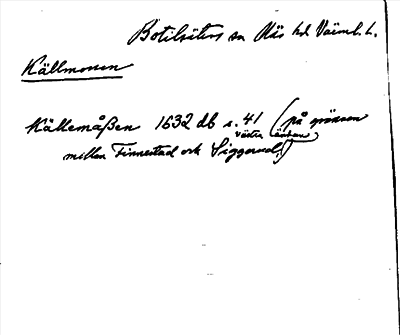 Botilsäters sn Näs hd Värml. l.
Källmossen
Källemåßen 1632 db s. 41 (på gränsen
västra ändan
mellan Finnestad och Siggerud.)